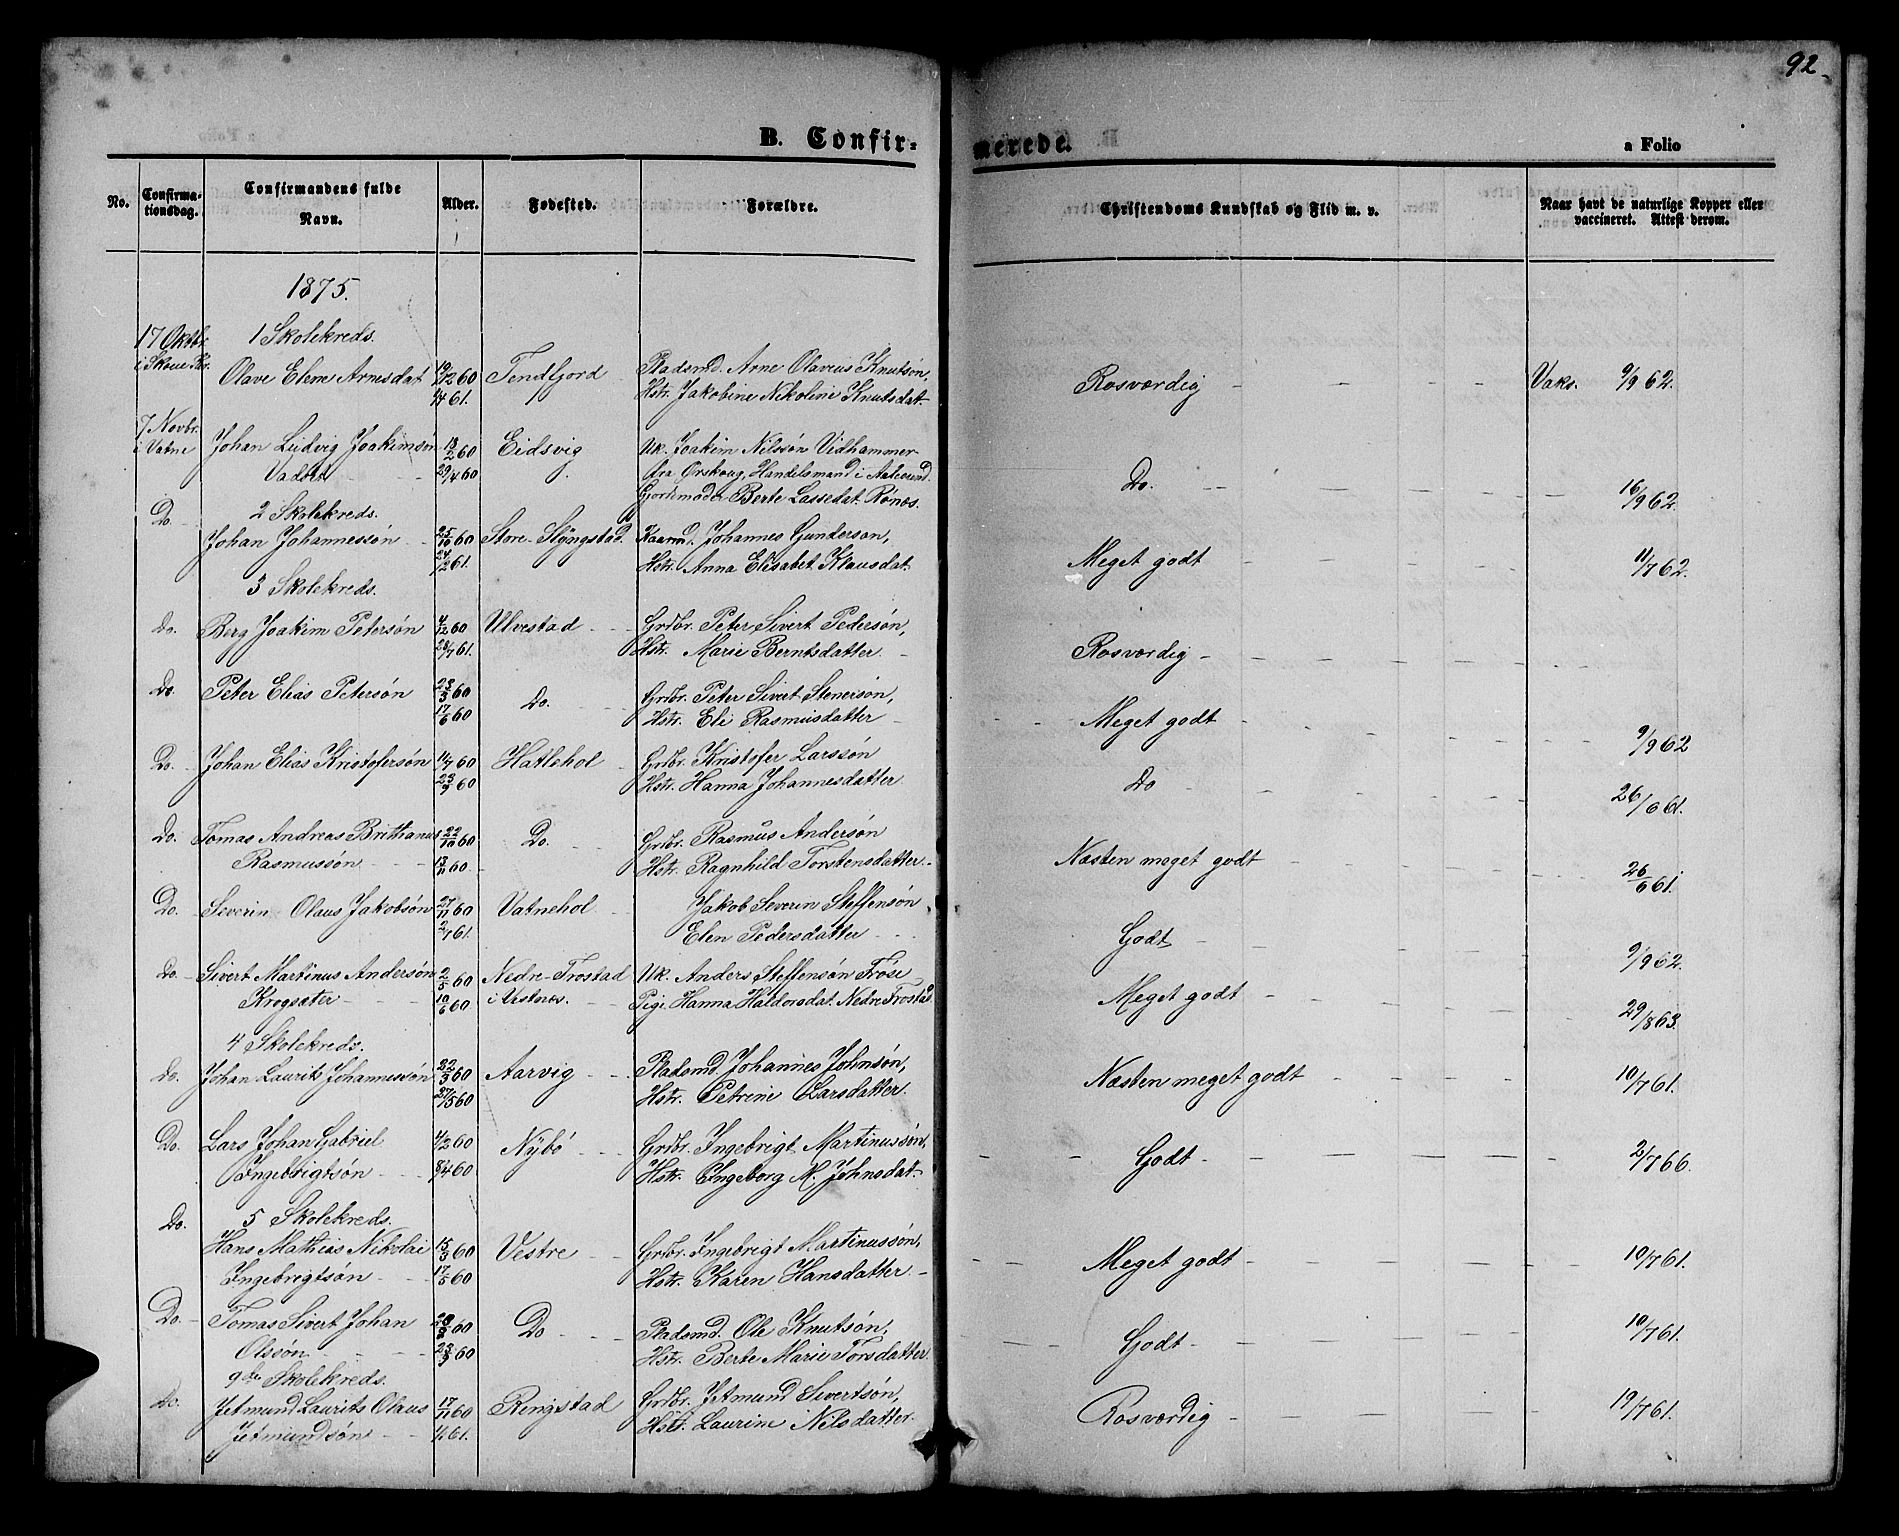 92.
B. Confir-
merede.
a Folio
No.
Confirma-
tionsdag.
Confirmandens fulde
Navn.
Alder.
Fødested.
Forældre.
Christendoms Kundskab og Flid m. v.
Naar havt de naturlige Kopper eller
vaccineret. Attest derom.
1875.
17 Oktbr. 1 Skolekreds.
i Skoue
Olave Elene Arnesdat 19/12 60 Tendfjord Pladsmd. Arne Olaveus Knutsøn, Rosværdig Vaks. 9/9 62.
2/4 61. Hstr. Jakobine Nikoline Knutsdat.
7 Novbr.
i Vatne Johan Ludvig Joakimsøn 18/2 60 Eidsvig Uk. Joakim Nilssøn Vidhammer
29/4 60 fra Ørskoug, Handelsmand i Aalesund Do. 16/9 62.
Gjordemoder Berte Lassedat. Rønæs.
Do 2 Skolekreds.
Johan Johannessøn 25/10 60 Store-Slyngstad. Kaarmd. Johannes Gunderson, Meget godt 11/7 62.
24/2 61. Hstr. Anna Elisabet Klausdat.
3 Skolekreds.
Do. Berg Joakim Petersøn 4/12 60 Ulvestad Grdbr. Peter Sivert Pedersøn, Rosværdig
28/7 61. Hstr. Marie Berntsdatter
Do. Peter Elias Petersøn 23/3 60 Do. Grdbr. Peter Sivert Stenersøn, Meget godt 9/9 62
17/6 60 Hstr. Eli Rasmusdatter
Do. Johan Elias Kristofersøn 11/7 60 Hatlehol Grdbr. Kristofer Larssøn Do 26/6 61.
23/9 60 Hstr. Hanna Johannesdatter
Do. Tomas Andreas Brithanus 22/10 60 Do. Grdbr. Rasmus Andersøn Næsten meget godt 26/6 61.
Rasmussøn 18/11 60 Hstr. Ragnhild Torstensdatter
Do. Severin Olaus Jakobsøn 27/11 60 Vatnehol Jakob Severin Steffensøn Godt 9/9 62.
2/7 61. Elen Pedersdatter
Do. Sivert Martinus Andersøn 2/5 60 Nedre-Frostad Uk. Anders Steffensøn Frøse Meget godt 29/8 63.
Krogsæter 10/6 60 i Vestnes. Pige Hanna Haldorsdat. Nedre Frostad
4 Skolekreds.
Do. Johan Laurits Johannessøn 22/3 60 Aarvig Pladsmd. Johannes Johnsøn, Næsten meget godt 10/7 61.
27/5 60 Hstr. Petrine Larsdatter.
Do. Lars Johan Gabriel 4/2 60 Nybø Grdbr. Ingebrigt Martinussøn, Godt 2/7 66.
Ingebrigtsøn 8/4 60 Hstr. Ingeborg M. Johnsdat
Do. 5 Skolekreds.
Hans Mathias Nikolai 15/3 60 Vestre Grdbr. Ingebrigt Martinussøn, Meget godt 10/7 61.
Ingebrigtsøn 17/5 60 Hstr. Karen Hansdatter
Do. Tomas Sivert Johan 28/8 60 Do Pladsmd. Ole Knutsøn, Godt 10/7 61.
Olssøn 23/9 60 Hstr. Berte Marie Torsdatter
9de Skolekreds.
Do. Jetmund Laurits Olaus 17/11 60 Ringstad Grdbr. Jetmund Sivertsøn, Rosværdig 19/7 61.
Jetmundsøn 61. Hstr. Laurine Nilsdatter.